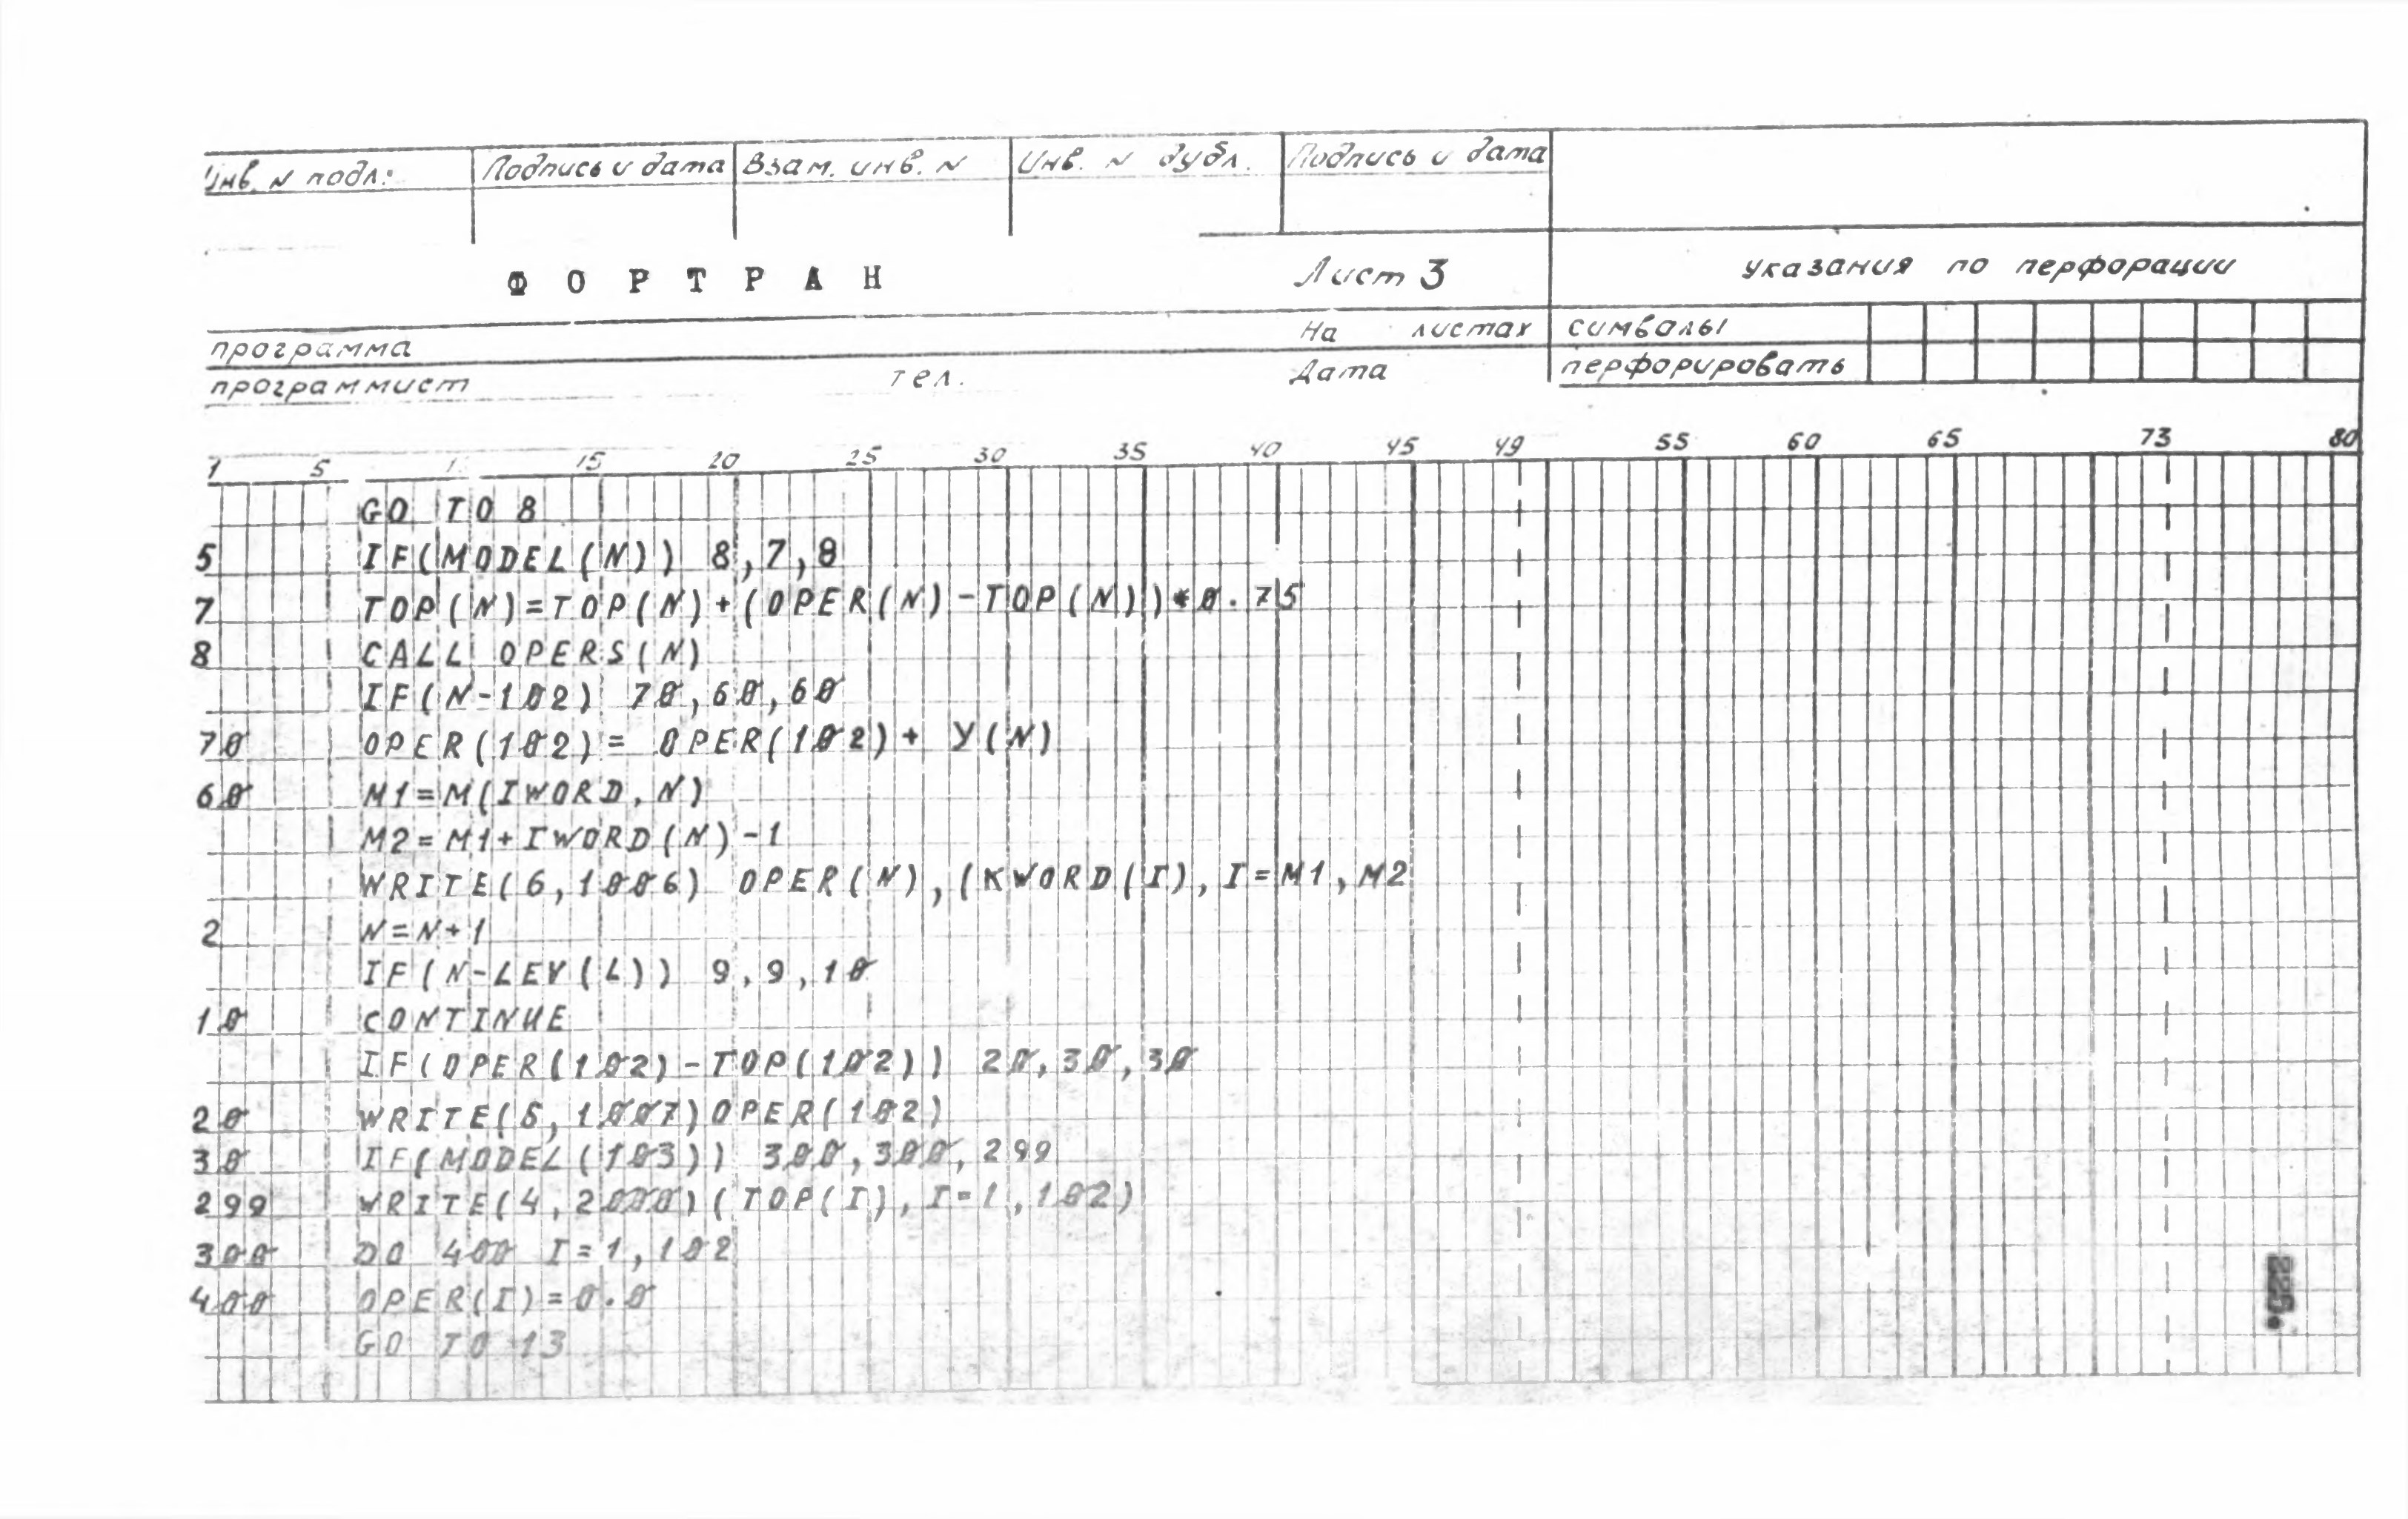 Инв. N подл. Подпись и дата Взам. инв. N Инв. N дубл. Подпись и дата
ФОРТРАН Лист 3 указания по перфорации
программа На листах символы
программист тел. Дата перфорировать
1 5 15 20 25 30 35 40 45 49 55 60 65 73 80
GO TO 8
5 IF(MODEL(N)) 8,7,8
7 TOP(N)=TOP(N)+(OPER(N)-TOP(N))*0.75
8 CALL OPERS(N)
IF(N-102) 70,60,60
70 OPER(102)= OPER(102)+ Y(N)
60 M1=M(IWORD,N)
M2=M1+IWORD(N)-1
WRITE(6,1006) OPER(N),(KWORD(I),I=M1,M2
2 N=N+1
IF(N-LEV(L)) 9,9,10
10 CONTINUE
IF(OPER(102)-TOP(102)) 20,30,30
20 WRITE(6,1007)OPER(102)
30 IF(MODEL(103)) 300,300,299
299 WRITE(4,2000)(TOP(I),I=1,102)
300 DO 400 I=1,102
400 OPER(I)=0.0
GO TO 13